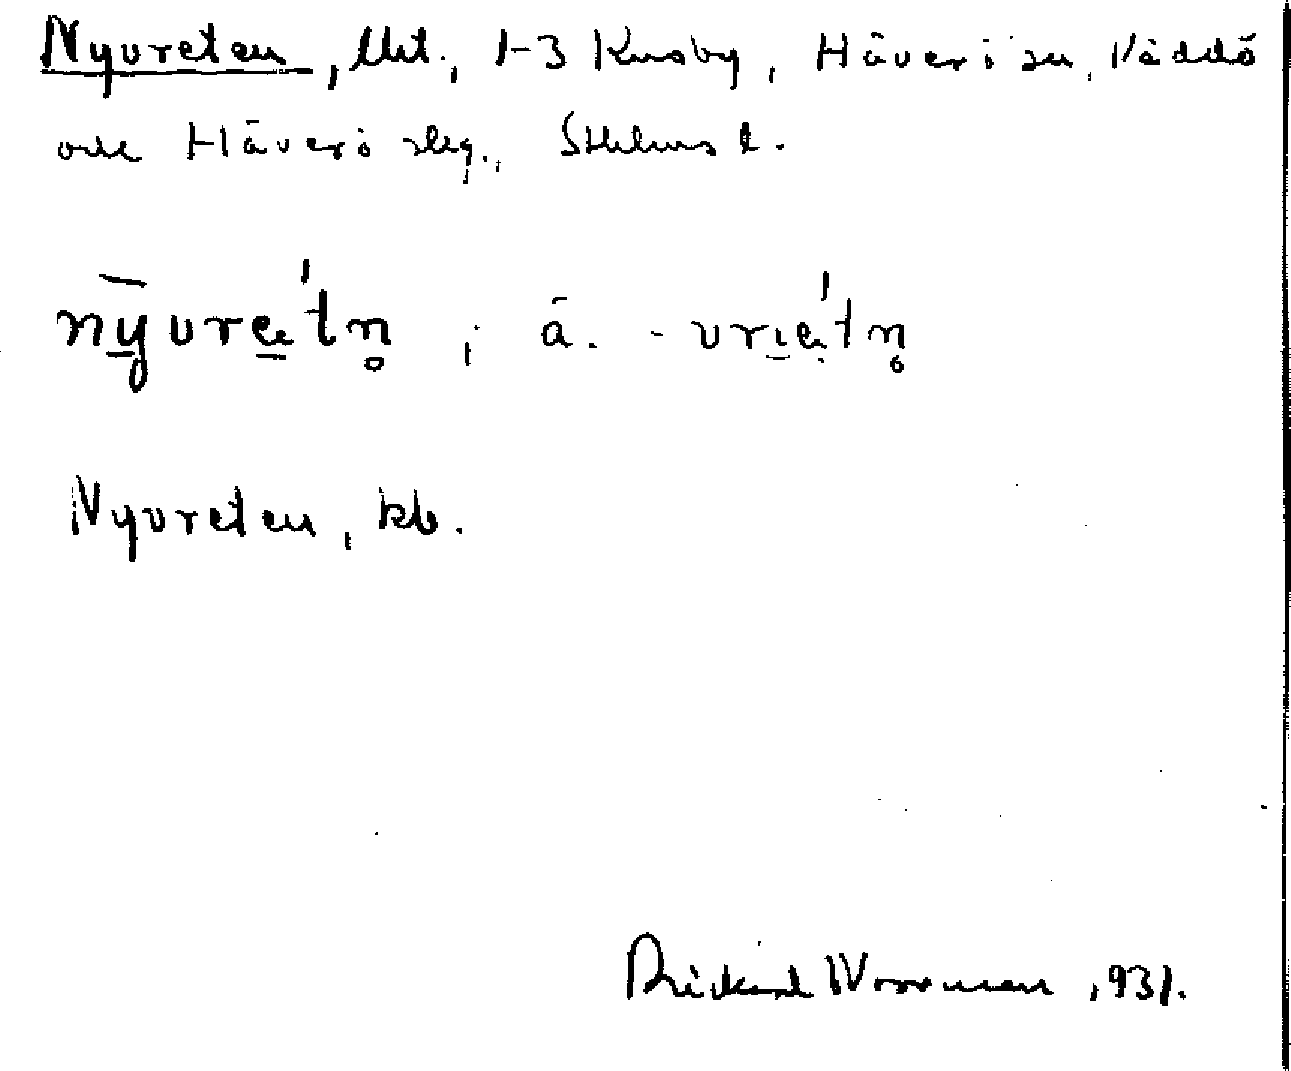 Nyvreten, lht., 1-3 Kusby, Häverö sn, Väddö
och Häverö slg., Sthlms l.
nȳvre̠´tn̥ ; ä. -vri̠e´tn̥
Nyvreten, kb.
Rickard Wessman, 1931.